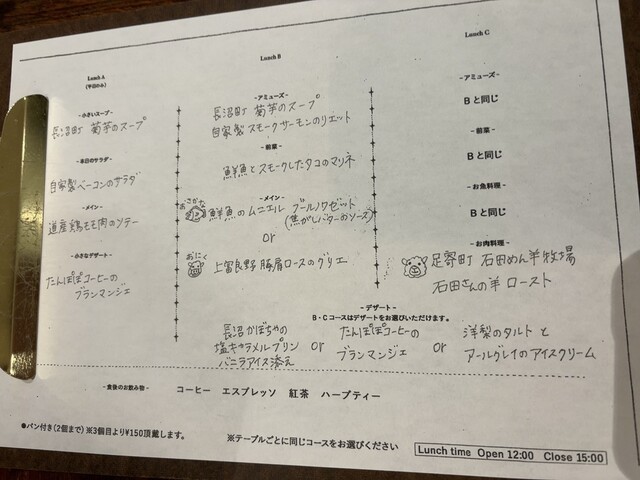 Lunch A
(平日のみ)
- 小さいスープ -
長沼町 菊芋のスープ
- 本日のサラダ -
自家製ベーコンのサラダ
- メイン -
道産鶏もも肉のソテー
- 小さなデザート -
たんぽぽコーヒーの
ブランマンジェ
Lunch B
- アミューズ -
長沼町 菊芋のスープ
自家製スモークサーモンのリエット
- 前菜 -
鮮魚とスモークしたタコのマリネ
- メイン -
おさかな
鮮魚のムニエル ブールノワゼット
(焦がしバターのソース)
or
おにく
上富良野 豚肩ロースのグリエ
Lunch C
- アミューズ -
Bと同じ
- 前菜 -
Bと同じ
- お魚料理 -
Bと同じ
- お肉料理 -
足寄町 石田めん羊牧場
石田さんの羊 ロースト
- デザート -
B・Cコースはデザートをお選びいただけます。
長沼かぼちゃの
塩キャラメルプリン
バニラアイス添え
or
たんぽぽコーヒーの
ブランマンジェ
or
洋梨のタルトと
アールグレイのアイスクリーム
- 食後のお飲み物 -
コーヒー エスプレッソ 紅茶 ハーブティー
●パン付き(2個まで)※3個目より¥150頂戴します。
※テーブルごとに同じコースをお選びください
Lunch time Open 12:00 Close 15:00